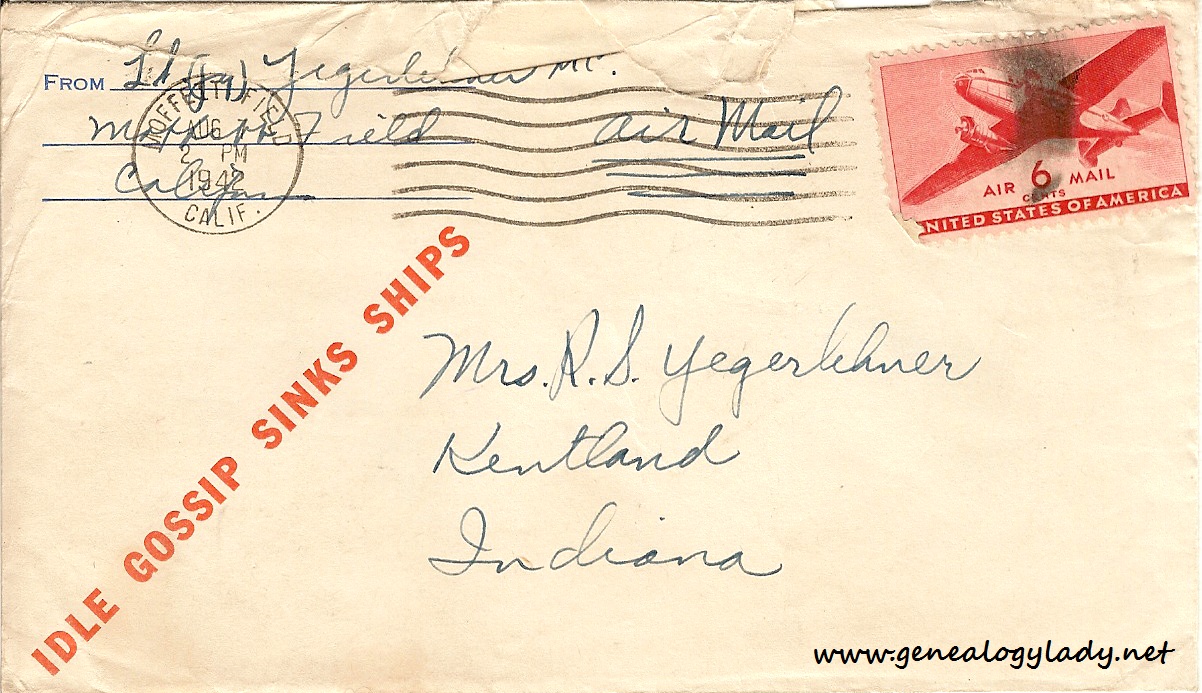 FROM Lt (jg) Yegerlehner MC.
Moffett Field
Calif
Air Mail
MOFFETT FIELD
AUG
2 PM
1942
CALIF.
AIR 6 MAIL
CENTS
UNITED STATES OF AMERICA
IDLE GOSSIP SINKS SHIPS
Mrs. R. S. Yegerlehner
Kentland
Indiana
www.genealogylady.net